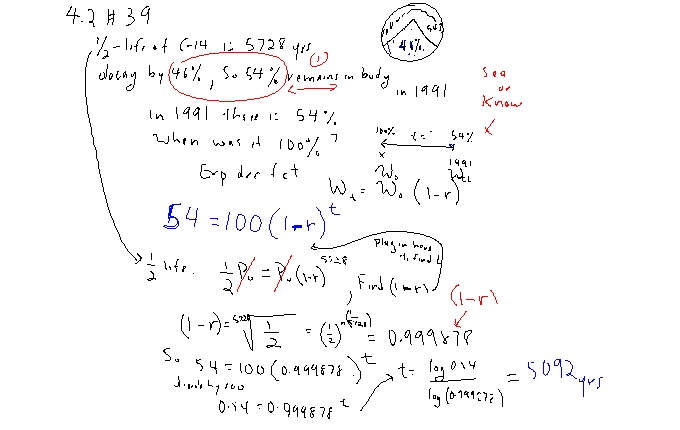 4.2 # 39
1/2-life of C-14 is 5728 yrs
46%
decay by 46%, so 54% remains in body
①
in 1991
See
or
Know
X
in 1991 there is 54%
When was it 100%?
100% t=? 54%
x 1991
W₀ Wₜ
Exp dec fct
Wₜ = W₀ (1-r)
54 = 100(1-r)^t
plug in here
1/2 life. 1/2 P₀ = P₀(1-r)^5728, Find (1-r)
(1-r)
(1-r) = ⁵⁷²⁸√(1/2) = (1/2)^(1/5728) = 0.999878
So 54 = 100(0.999878)^t
divide by 100
0.54 = 0.999878^t
t = log 0.54 / log(0.999878) = 5092 yrs